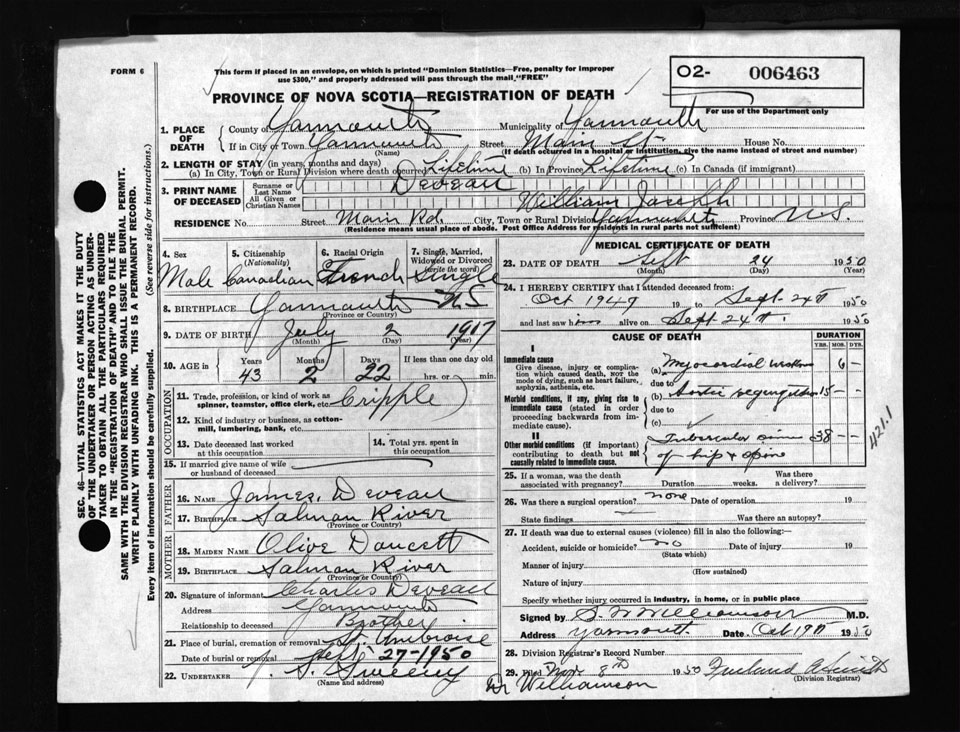 FORM 6
This form if placed in an envelope, on which is printed "Dominion Statistics—Free, penalty for improper
use $300," and properly addressed will pass through the mail "FREE"
O2- 006463
For use of the Department only
PROVINCE OF NOVA SCOTIA—REGISTRATION OF DEATH
1. PLACE OF DEATH
County of Yarmouth Municipality of Yarmouth
If in City or Town Yarmouth Street Main St House No.
(Name) (If death occurred in a hospital or institution, give the name instead of street and number)
2. LENGTH OF STAY (in years, months and days)
(a) In City, Town or Rural Division where death occurred Lifetime (b) In Province Lifetime (c) In Canada (if immigrant)
3. PRINT NAME OF DECEASED
Surname or Last Name Deveau
All Given or Christian Names William Joseph
RESIDENCE No. Street Main Rd. City, Town or Rural Division Yarmouth Province N.S.
(Residence means usual place of abode. Post Office Address for residents in rural parts not sufficient)
4. Sex 5. Citizenship (Nationality) 6. Racial Origin 7. Single, Married, Widowed or Divorced (write the word)
Male Canadian French Single
8. BIRTHPLACE Yarmouth N.S
(Province or Country)
9. DATE OF BIRTH July 2 1917
(Month) (Day) (Year)
10. AGE in Years Months Days If less than one day old
43 2 22 hrs. or min.
OCCUPATION
11. Trade, profession, or kind of work as spinner, teamster, office clerk, etc. Cripple
12. Kind of industry or business, as cotton-mill, lumbering, bank, etc.
13. Date deceased last worked at this occupation
14. Total yrs. spent in this occupation
15. If married give name of wife or husband of deceased
FATHER
16. NAME James Deveau
17. BIRTHPLACE Salman River
(Province or Country)
MOTHER
18. MAIDEN NAME Olive Doucett
19. BIRTHPLACE Salman River
(Province or Country)
20. Signature of informant Charles Deveau
Address Yarmouth
Relationship to deceased Brother
21. Place of burial, cremation or removal St. Ambroise
Date of burial or removal Sept 27-1950
22. UNDERTAKER S. Sweeny
(Name and address)
MEDICAL CERTIFICATE OF DEATH
23. DATE OF DEATH Sept 24 1950
(Month) (Day) (Year)
24. I HEREBY CERTIFY that I attended deceased from:
Oct 1947 19 to Sept 24th 1950
and last saw him alive on Sept 24th 1950
CAUSE OF DEATH
DURATION
YRS. MOS. DYS.
I
Immediate cause
Give disease, injury or complication which caused death, not the mode of dying, such as heart failure, asphyxia, asthenia, etc.
(a) Myocardial 6 –
due to
Morbid conditions, if any, giving rise to immediate cause (stated in order proceeding backwards from immediate cause).
(b) Aortic regurgitation 15 – –
due to
(c)
II
Other morbid conditions (if important) contributing to death but not causally related to immediate cause.
Tubercular 38 – –
of hip & spine
421.1
25. If a woman, was the death associated with pregnancy? Duration weeks. Was there a delivery?
26. Was there a surgical operation? none Date of operation 19
State findings Was there an autopsy?
27. If death was due to external causes (violence) fill in also the following:—
Accident, suicide or homicide? no Date of injury 19
(State which)
Manner of injury
(How sustained)
Nature of injury
Specify whether injury occurred in industry, in home, or in public place
Signed by Williamson M.D.
Address Yarmouth Date Oct 19th 1950
28. Division Registrar's Record Number
29. Filed Nov 8th 1950
(Division Registrar)
Dr Williamson
SEC. 46—VITAL STATISTICS ACT MAKES IT THE DUTY
OF THE UNDERTAKER OR PERSON ACTING AS UNDER-
TAKER TO OBTAIN ALL THE PARTICULARS REQUIRED
IN THE "REGISTRATION OF DEATH" AND TO FILE THE
SAME WITH THE DIVISION REGISTRAR WHO SHALL ISSUE THE BURIAL PERMIT.
WRITE PLAINLY WITH UNFADING INK. THIS IS A PERMANENT RECORD.
Every item of information should be carefully supplied. (See reverse side for instructions.)